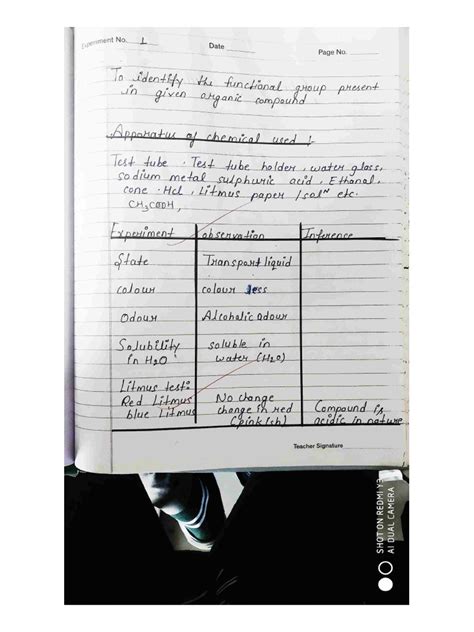 Experiment No. 1
Date
Page No.
To identify the functional group present
in given organic compound
Apparatus of chemical used :
Test tube . Test tube holder, water glass,
sodium metal sulphuric acid, Ethanol,
conc. Hcl, Litmus paper /solⁿ etc.
CH3COOH,
Experiment observation Inference
State Transport liquid
colour colour less
Odour Alcoholic odour
Solubility soluble in
in H2O water (H2O)
Litmus test:
Red Litmus No change
blue Litmus change in red Compound is
(pink(sh) acidic in nature
Teacher Signature
SHOT ON REDMI Y3
AI DUAL CAMERA